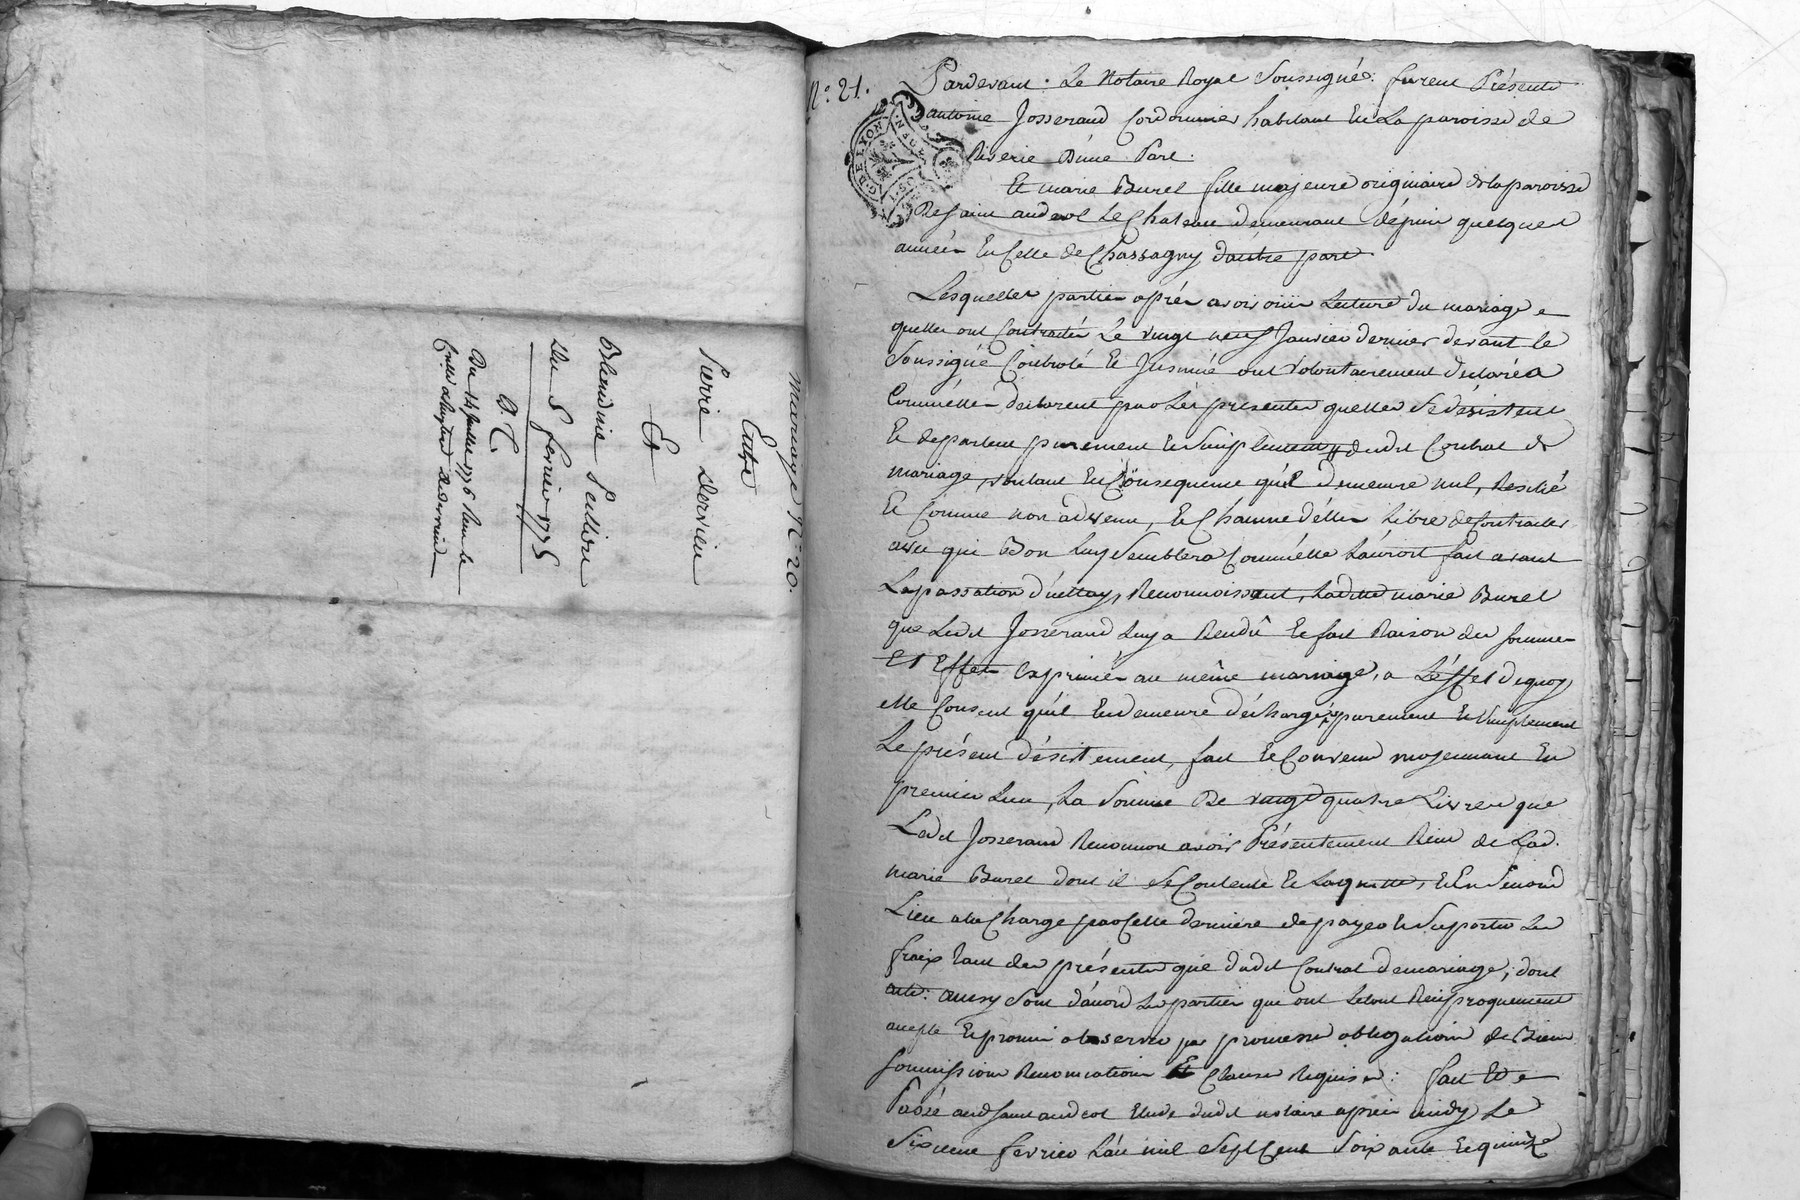 mariage N° 20.
Entre
Pierre dervieu
Et
Blandine
Du 8 fevrier 1775
D. C.
Du 14 1776
N° 21.
G. DE LYON
Pardevant Le Notaire Royal Soussigné furent Présents
antoine Josserand Cordonnier habitant En La paroisse de
Riverie D'une Part.
Et marie Burel fille majeure originaire de la paroisse
De saint andeol Le Chateau demeurant dépuis quelques
années En Celle de Chassagny d'autre part
Lesquelles parties aprés avoir oüie Lecture du mariage
quelles ont Contractés Le vingt neuf Janvier dernier devant le
Soussigné Controlé Et Jnsinué ont volontairement declarées
Comme elles declarent par Les presentes quelles Se désistent
Et departent purement Et Simplement dudit Contrat de
mariage, voulant En Consequence qu'il demeure nul, Resilié
Et Comme non advenu, Et Chacune d'elles Libre de Contracter
avec qui Bon Luy Semblera Comm'elle L'auroit fait avant
La passation d'icelluy, Reconnoissant, Laditte marie Burel
que Ledit Josserand Luy a Rendû Et fait Raison des sommes
Et Effets Exprimés au même mariage, a L'effet de quoy
elle Consent qu'il En demeure déchargé, purement Et Simplement
Le présent désistement, fait Et Convenu moyennant En
premier Lieu, La Somme De vingt quatre Livres que
Ledit Josserand Reconnoit avoir Présentement Reçu de Lad.
marie Burel dont il Se Contente Et La quitte, Et En Second
Lieu a la Charge par Cette derniere de payer Et Suporter Les
fraix tant des présentes que dudit Contrat de mariage, dont
acte: ainsy Sont d'accord Les parties qui ont Letout Reciproquement
accepté Et promis observer par promesse obligation de Biens
Soumissions Renonciations Et Clauses Requises: fait Et
Passé aud Saint andeol Etude dudit notaire aprés midy Le
Sixieme fevrier L'an mil Sept Cent Soixante Et quinze